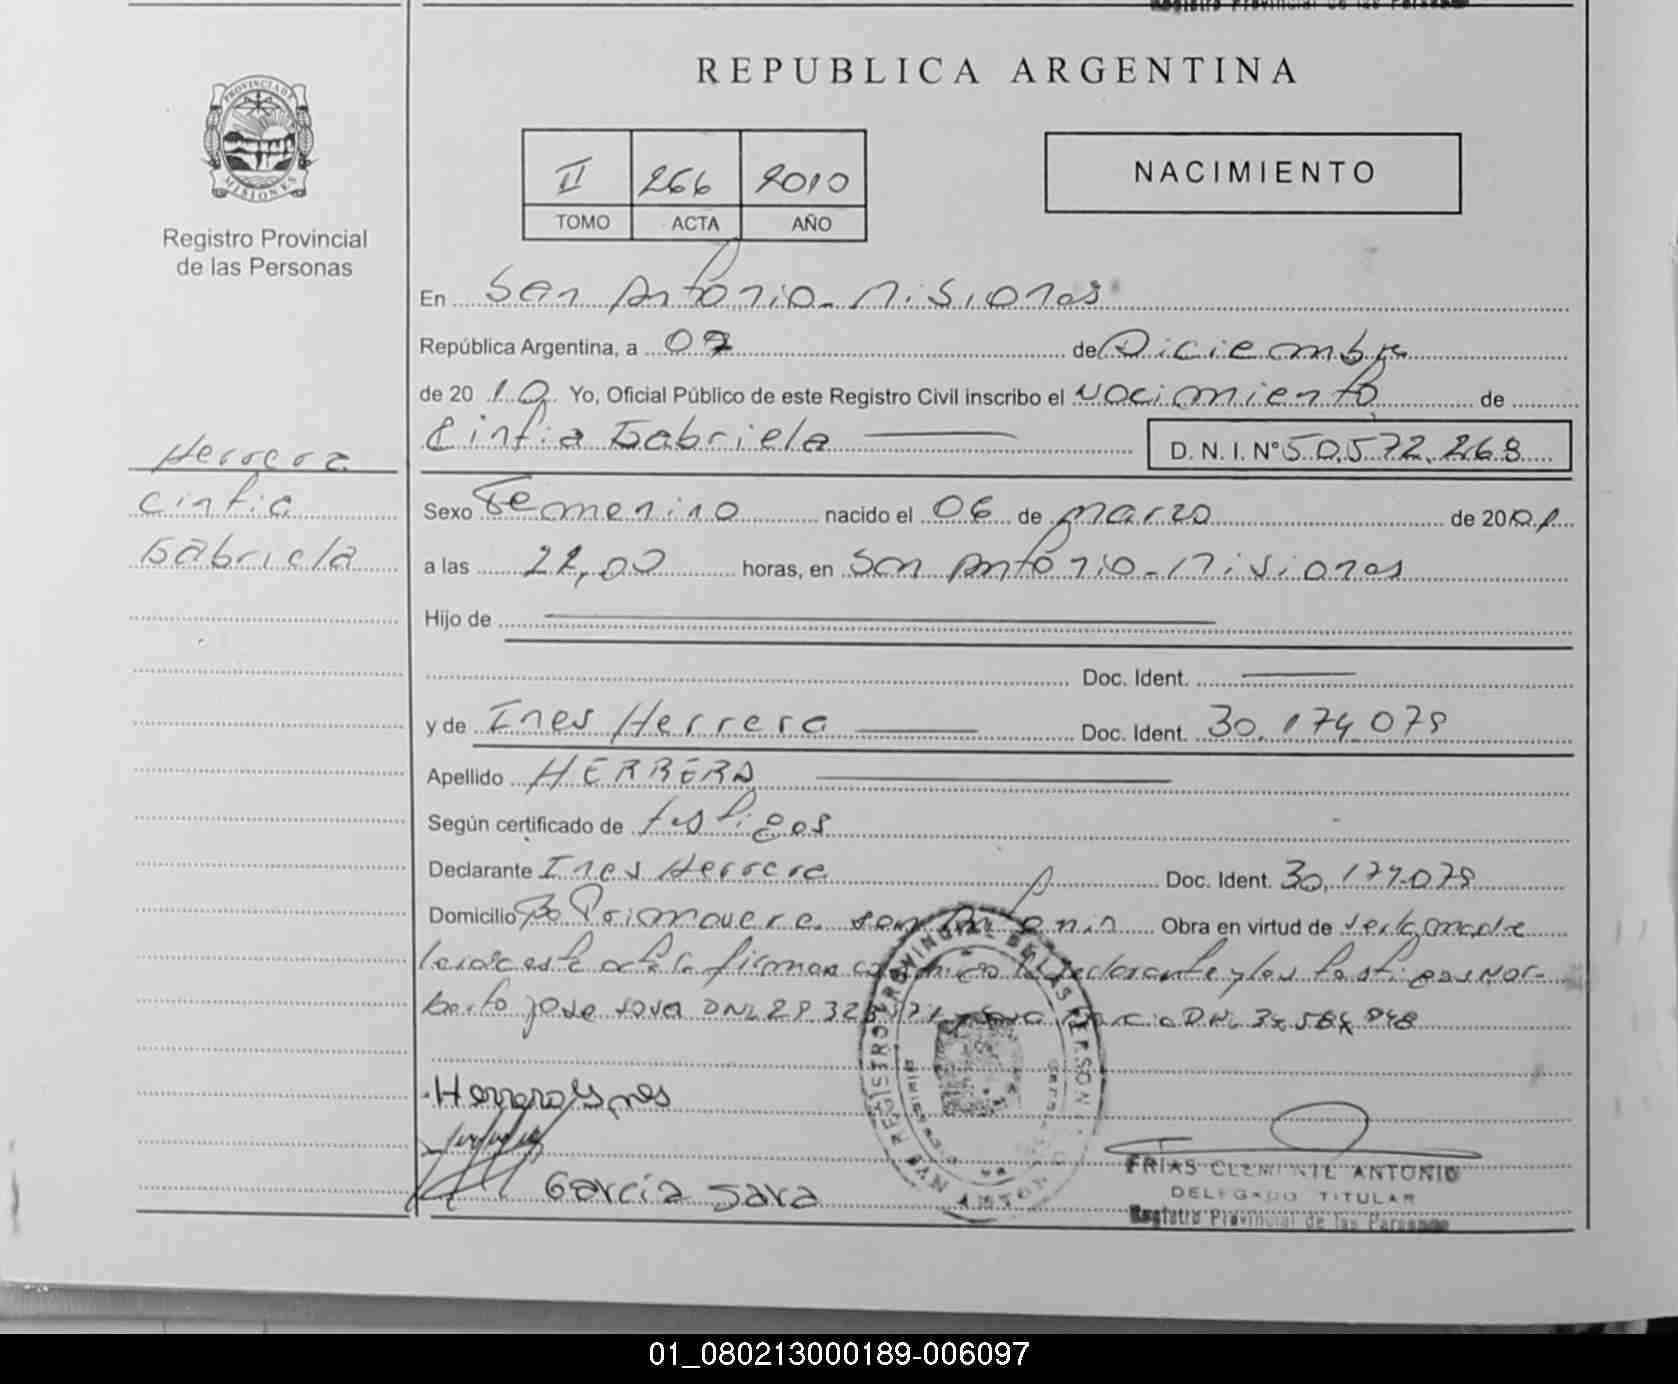 Registro Provincial de las Personas
REPUBLICA ARGENTINA
PROVINCIA DE
MISIONES
Registro Provincial
de las Personas
II 266 2010
TOMO ACTA AÑO
NACIMIENTO
En San Antonio - Misiones
República Argentina, a 07 de Diciembre
de 2010 Yo, Oficial Público de este Registro Civil inscribo el Nacimiento de
Cintia Gabriela D. N. I. Nº 50.572.268
Herrera
Cintia
Gabriela
Sexo Femenino nacido el 06 de Marzo de 200
a las 22,00 horas, en San Antonio - Misiones
Hijo de
Doc. Ident.
y de Ines Herrera Doc. Ident. 30.174.079
Apellido HERRERA
Según certificado de testigos
Declarante Ines Herrera Doc. Ident. 30.174.079
Domicilio Bo Primavera San Antonio Obra en virtud de ser la madre
leida esta acta la firman conmigo la declarante y los testigos Nor-
berto jose sosa DNI y Sara Garcia DNI
Herrera Ynes
Garcia Sara
REGISTRO PROVINCIAL DE LAS PERSONAS
FRIAS CLEMENTE ANTONIO
DELEGADO TITULAR
Registro Provincial de las Personas
01_080213000189-006097